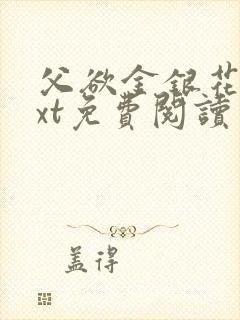 父欲金银花
xt免費閱讀
盖得